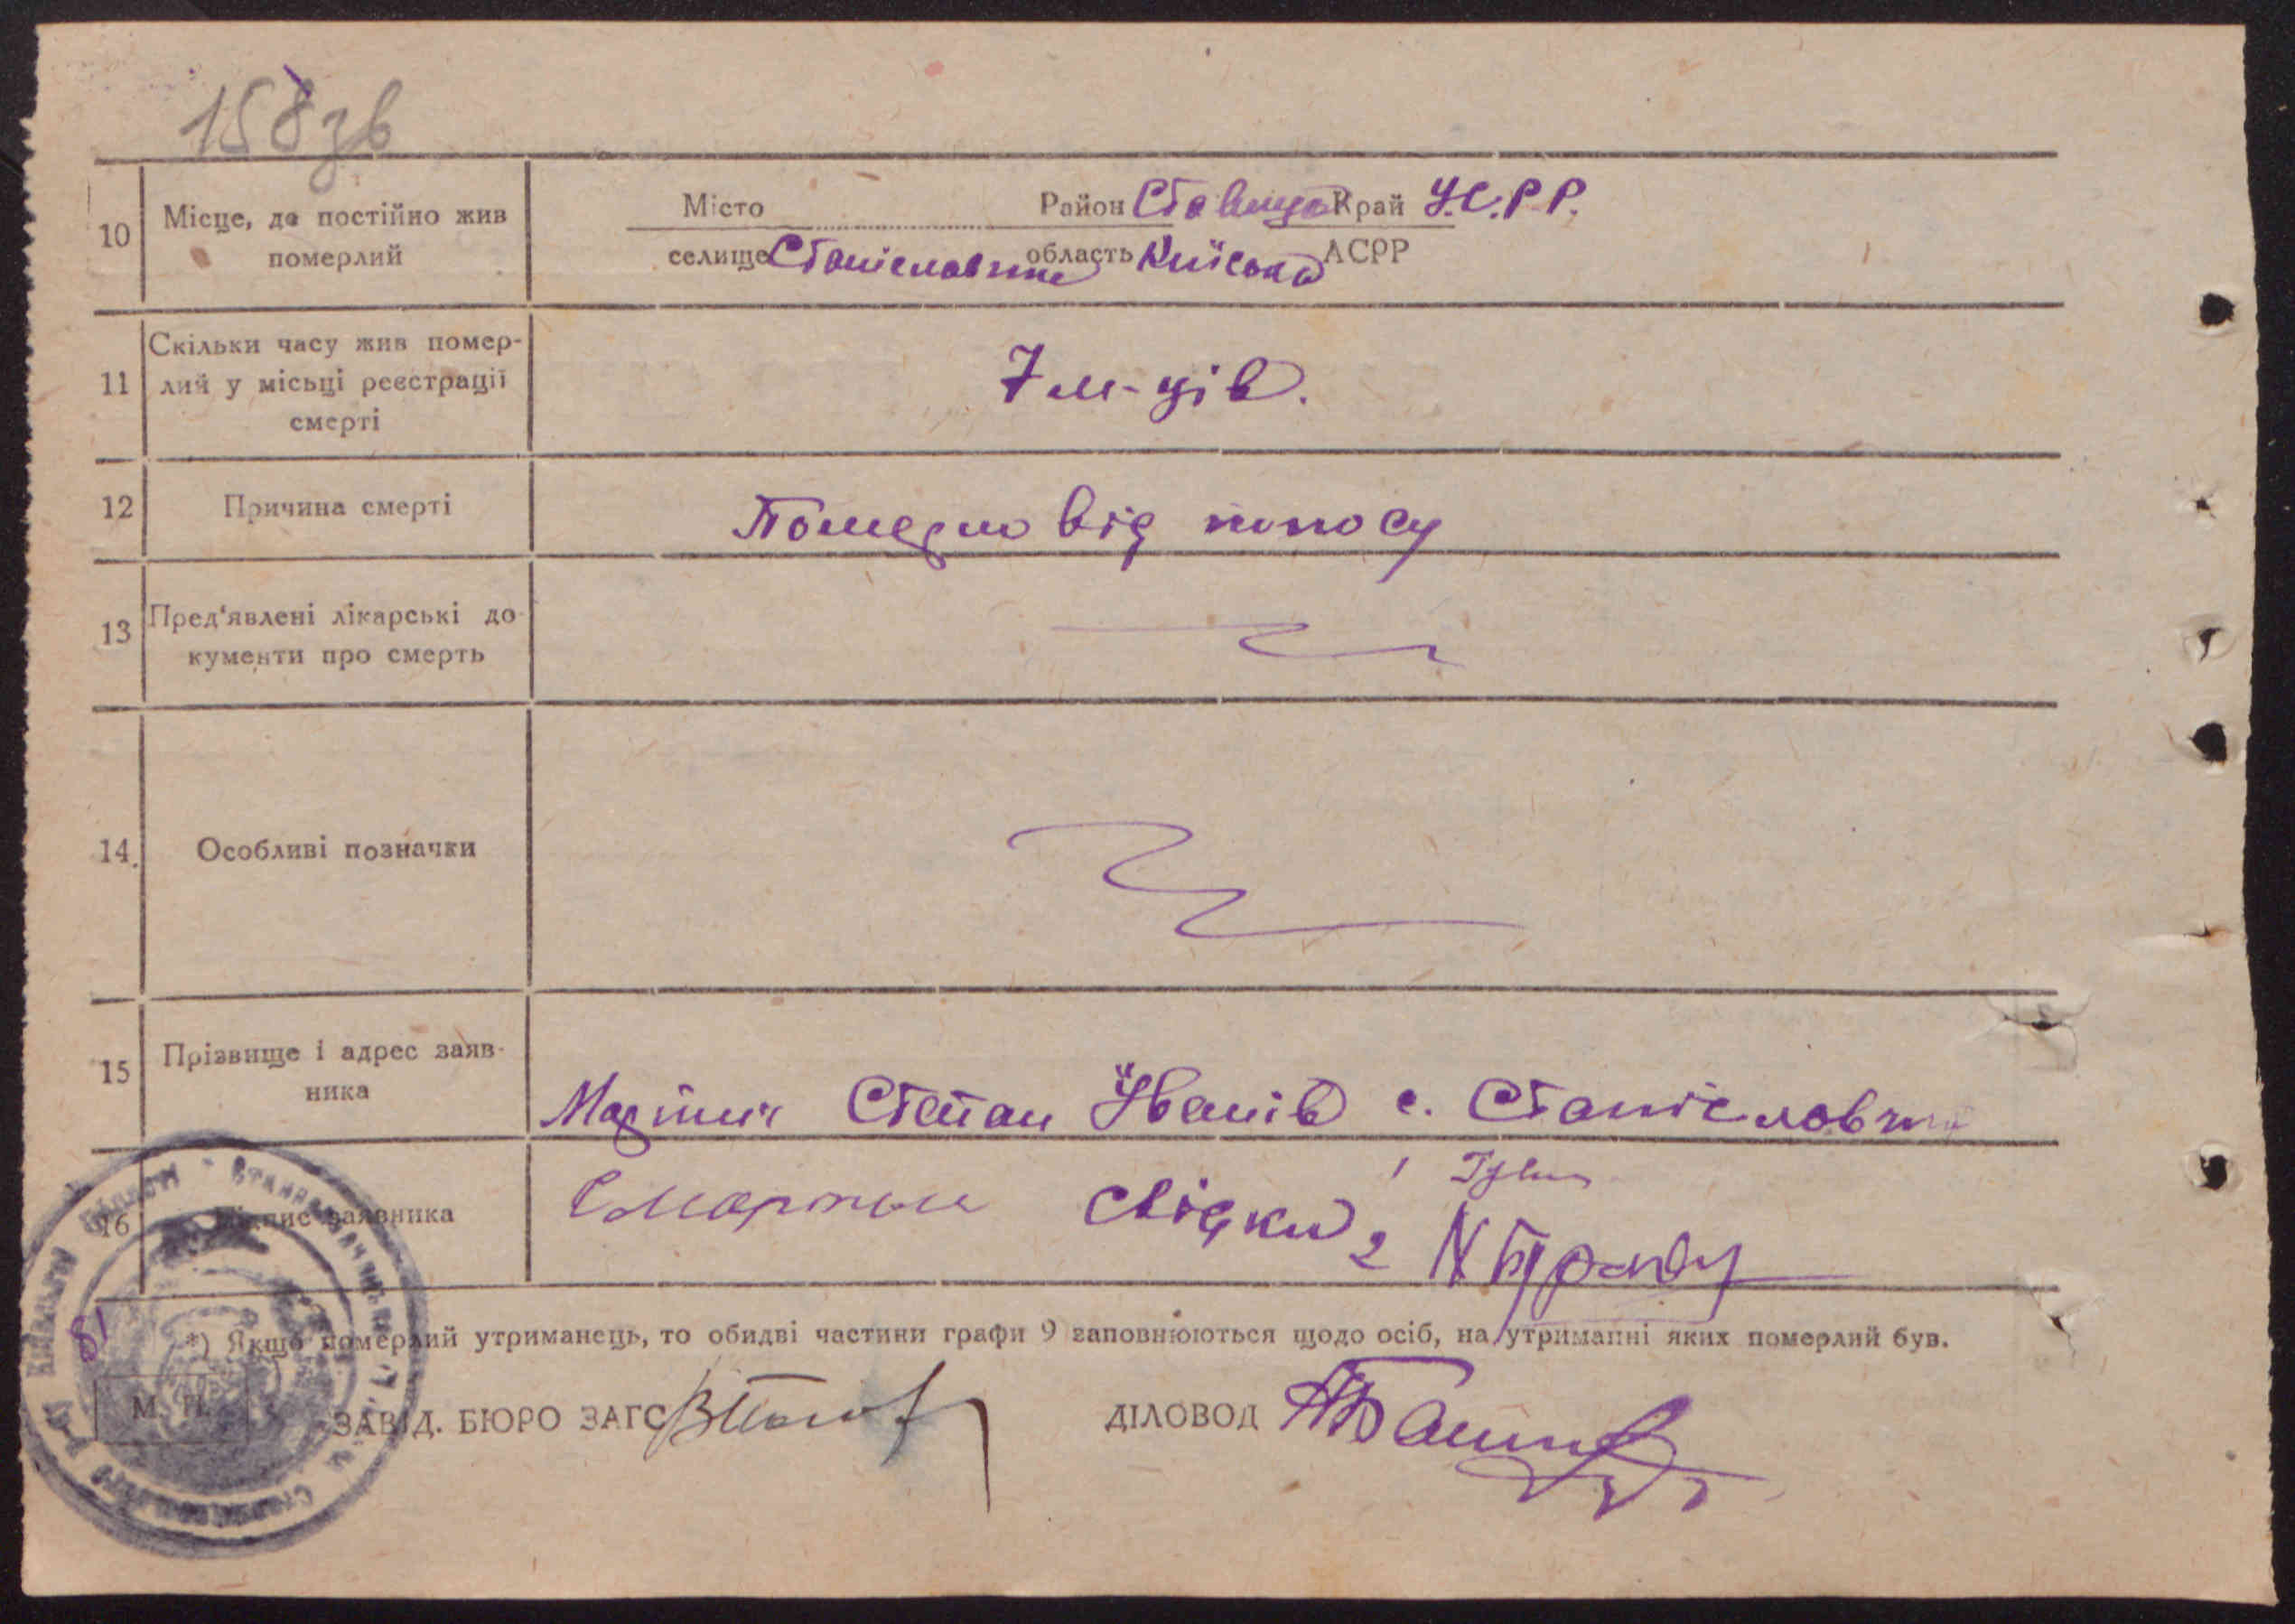 158зв
10 Місце, де постійно жив померлий
Місто Район Ставищ. Край У.С.Р.Р.
селище Станіславчик область Київська АСРР
11 Скільки часу жив помер-
лий у місьці реєстрації
смерті
7 м-ців.
12 Причина смерті
Померло від поносу
13 Пред'явлені лікарські до-
кументи про смерть
14 Особливі позначки
15 Прізвище і адрес заяв-
ника
Мартин Степан Іванів с. Станіславчик
16 Підпис заявника
СМартин свідки 1
2
81
*) Якщо померлий утриманець, то обидві частини графи 9 заповнюються щодо осіб, на утриманні яких померлий був.
М. П.
ЗАВІД. БЮРО ЗАГС
ДІЛОВОД